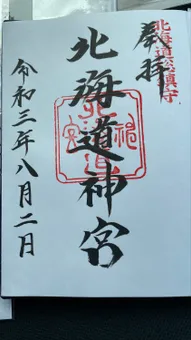 奉拝
北海道総鎮守
北海道神宮
令和三年八月二日